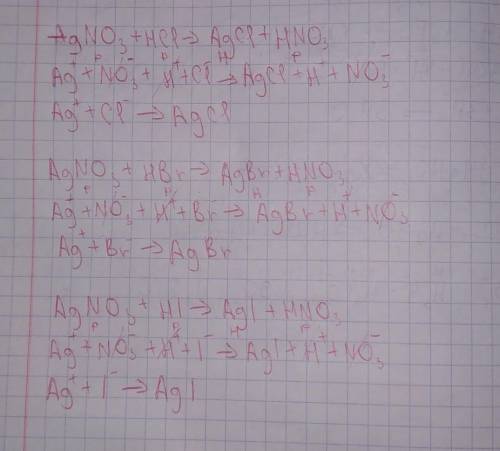 AgNO₃ + HCl → AgCl + HNO₃
р р н р
Ag⁺ + NO₃⁻ + H⁺ + Cl⁻ → AgCl + H⁺ + NO₃⁻
Ag⁺ + Cl⁻ → AgCl
AgNO₃ + HBr → AgBr + HNO₃
р р н р
Ag⁺ + NO₃⁻ + H⁺ + Br⁻ → AgBr + H⁺ + NO₃⁻
Ag⁺ + Br⁻ → AgBr
AgNO₃ + HI → AgI + HNO₃
р р н р
Ag⁺ + NO₃⁻ + H⁺ + I⁻ → AgI + H⁺ + NO₃⁻
Ag⁺ + I⁻ → AgI